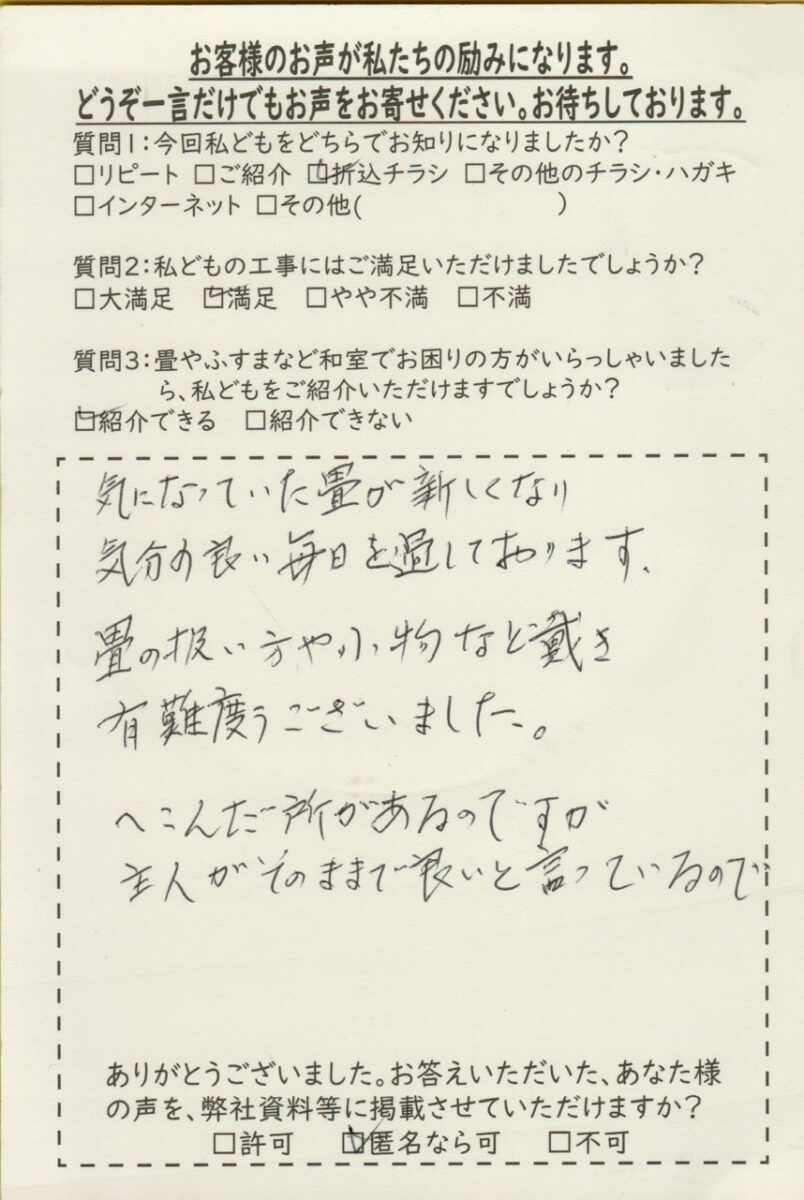 お客様のお声が私たちの励みになります。
どうぞ一言だけでもお声をお寄せください。お待ちしております。
質問1:今回私どもをどちらでお知りになりましたか?
□リピート □ご紹介 ☑折込チラシ □その他のチラシ・ハガキ
□インターネット □その他( )
質問2:私どもの工事にはご満足いただけましたでしょうか?
□大満足 ☑満足 □やや不満 □不満
質問3:畳やふすまなど和室でお困りの方がいらっしゃいました
ら、私どもをご紹介いただけますでしょうか?
☑紹介できる □紹介できない
気になっていた畳が新しくなり
気分の良い毎日を過しております、
畳の扱い方や小物など戴き
有難度うございました。
へこんだ所があるのですが
主人がそのままで良いと言っているので
ありがとうございました。お答えいただいた、あなた様
の声を、弊社資料等に掲載させていただけますか?
□許可 ☑匿名なら可 □不可